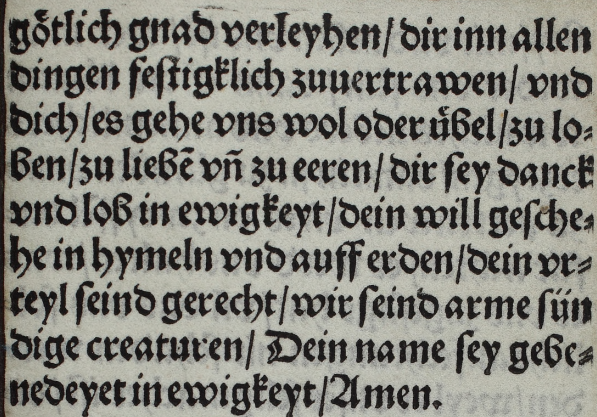 götlich gnad verleyhen/ dir inn allen
dingen festigklich zuuertrawen/ vnd
dich/es gehe vns wol oder übel/zu lo⸗
ben/zu liebē vñ zu eeren/ dir sey danck
vnd lob in ewigkeyt/dein will gesche⸗
he in hymeln vnd auff erden/dein vr⸗
teyl seind gerecht/wir seind arme sün
dige creaturen/ Dein name sey gebe⸗
nedeyet in ewigkeyt/Amen.